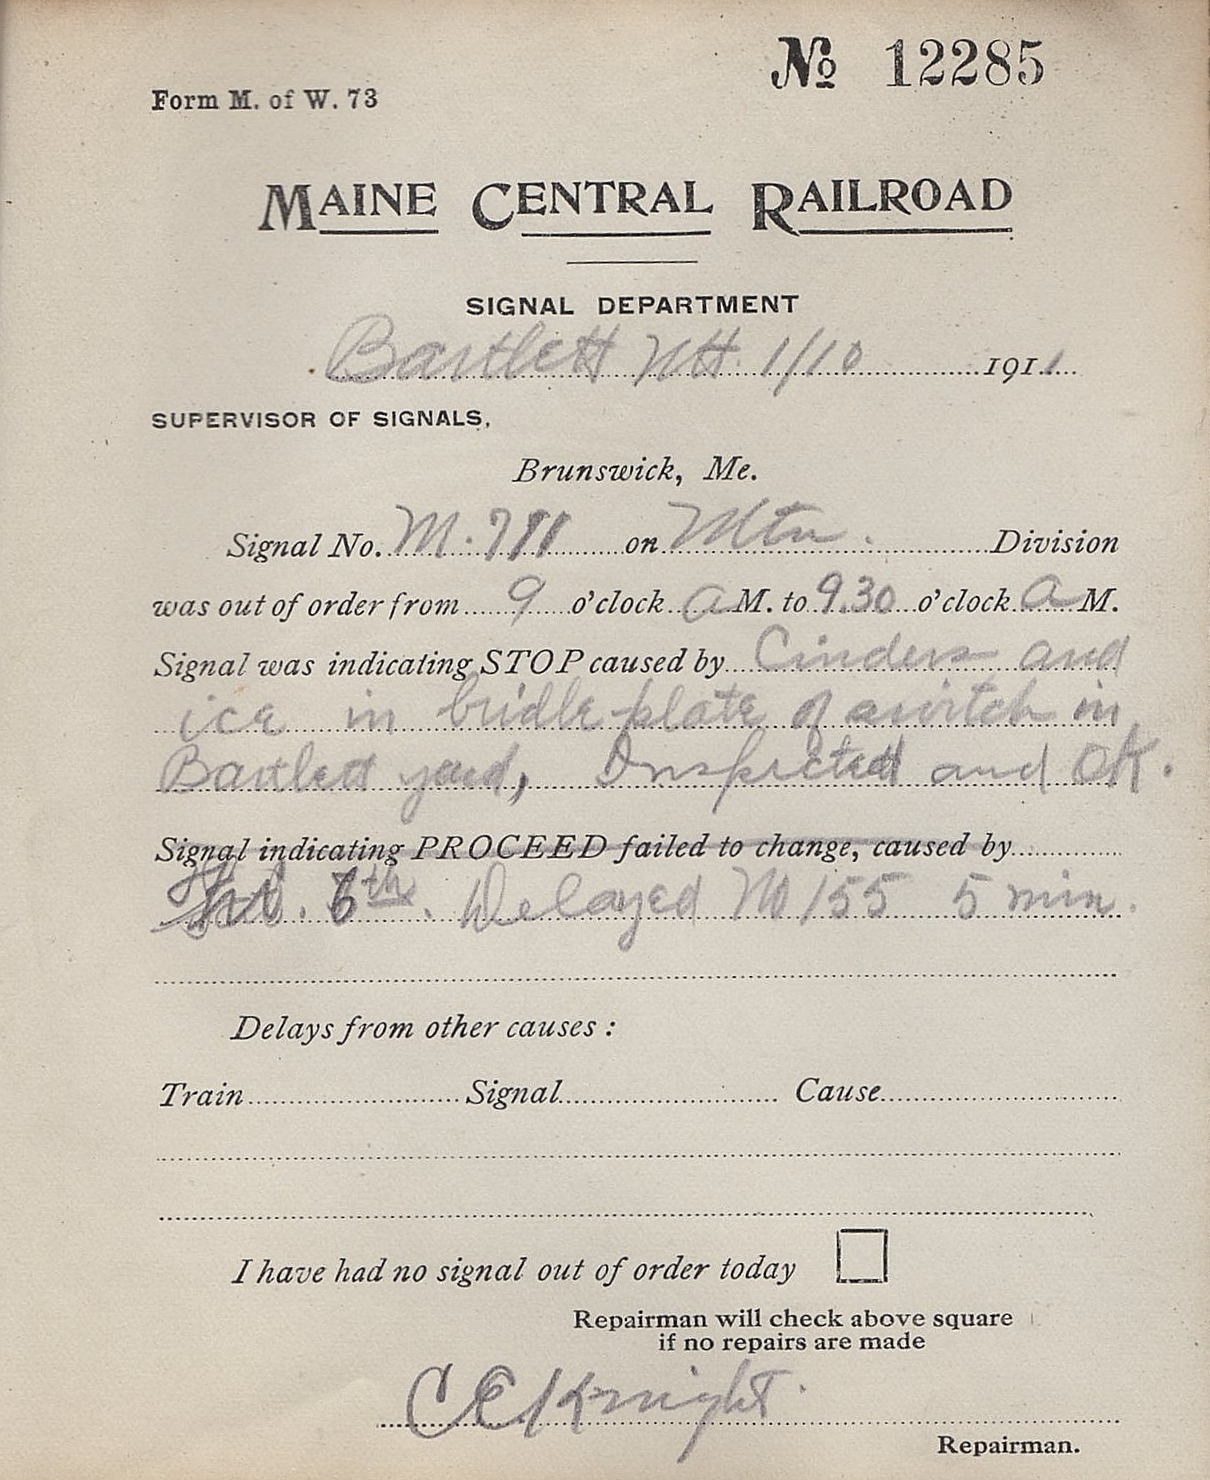 № 12285
Form M. of W. 73
MAINE CENTRAL RAILROAD
SIGNAL DEPARTMENT
Bartlett NH. 1/10 1911
SUPERVISOR OF SIGNALS,
Brunswick, Me.
Signal No. M. 711 on Mtn. Division
was out of order from 9 o'clock a M. to 9.30 o'clock a M.
Signal was indicating STOP caused by Cinders and
ice in bridle plate of switch in
Bartlett yard, Inspected and OK.
Signal indicating PROCEED failed to change, caused by
6th. Delayed No 155 5 min.
Delays from other causes :
Train Signal Cause
I have had no signal out of order today
Repairman will check above square
if no repairs are made
C E Knight.
Repairman.